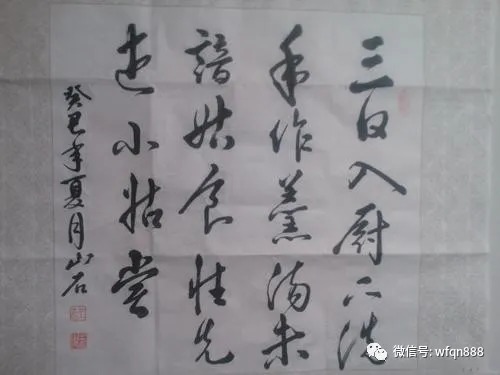 三日入厨下洗
手作羹汤未
諳姑食性先
遣小姑尝
癸巳年夏月山石
微信号: wfqn888